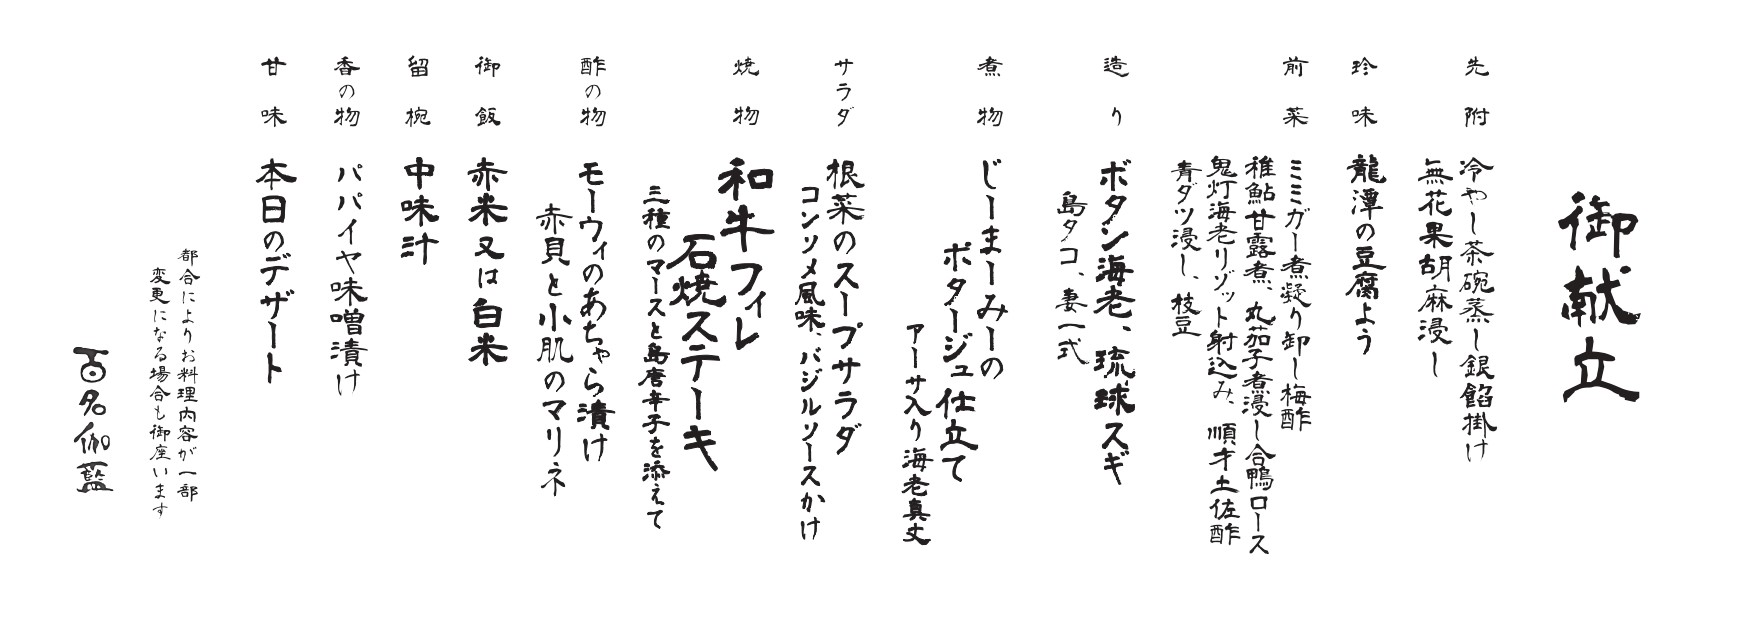 御献立
先附
冷やし茶碗蒸し銀餡掛け
無花果胡麻浸し
珍味
龍潭の豆腐よう
前菜
ミミガー煮凝り卸し梅酢
稚鮎甘露煮、丸茄子煮浸し合鴨ロース
鬼灯海老リゾット射込み、順才土佐酢
青ダツ浸し、枝豆
造り
ボタン海老、琉球スギ
島タコ、妻一式
煮物
じーまーみーの
ポタージュ仕立て
アーサ入り海老真丈
サラダ
根菜のスープサラダ
コンソメ風味、バジルソースかけ
焼物
和牛フィレ
石焼ステーキ
三種のマースと島唐辛子を添えて
酢の物
モーウィのあちゃら漬け
赤貝と小肌のマリネ
御飯
赤米又は白米
留椀
中味汁
香の物
パパイヤ味噌漬け
甘味
本日のデザート
都合によりお料理内容が一部
変更になる場合も御座います
百名伽藍